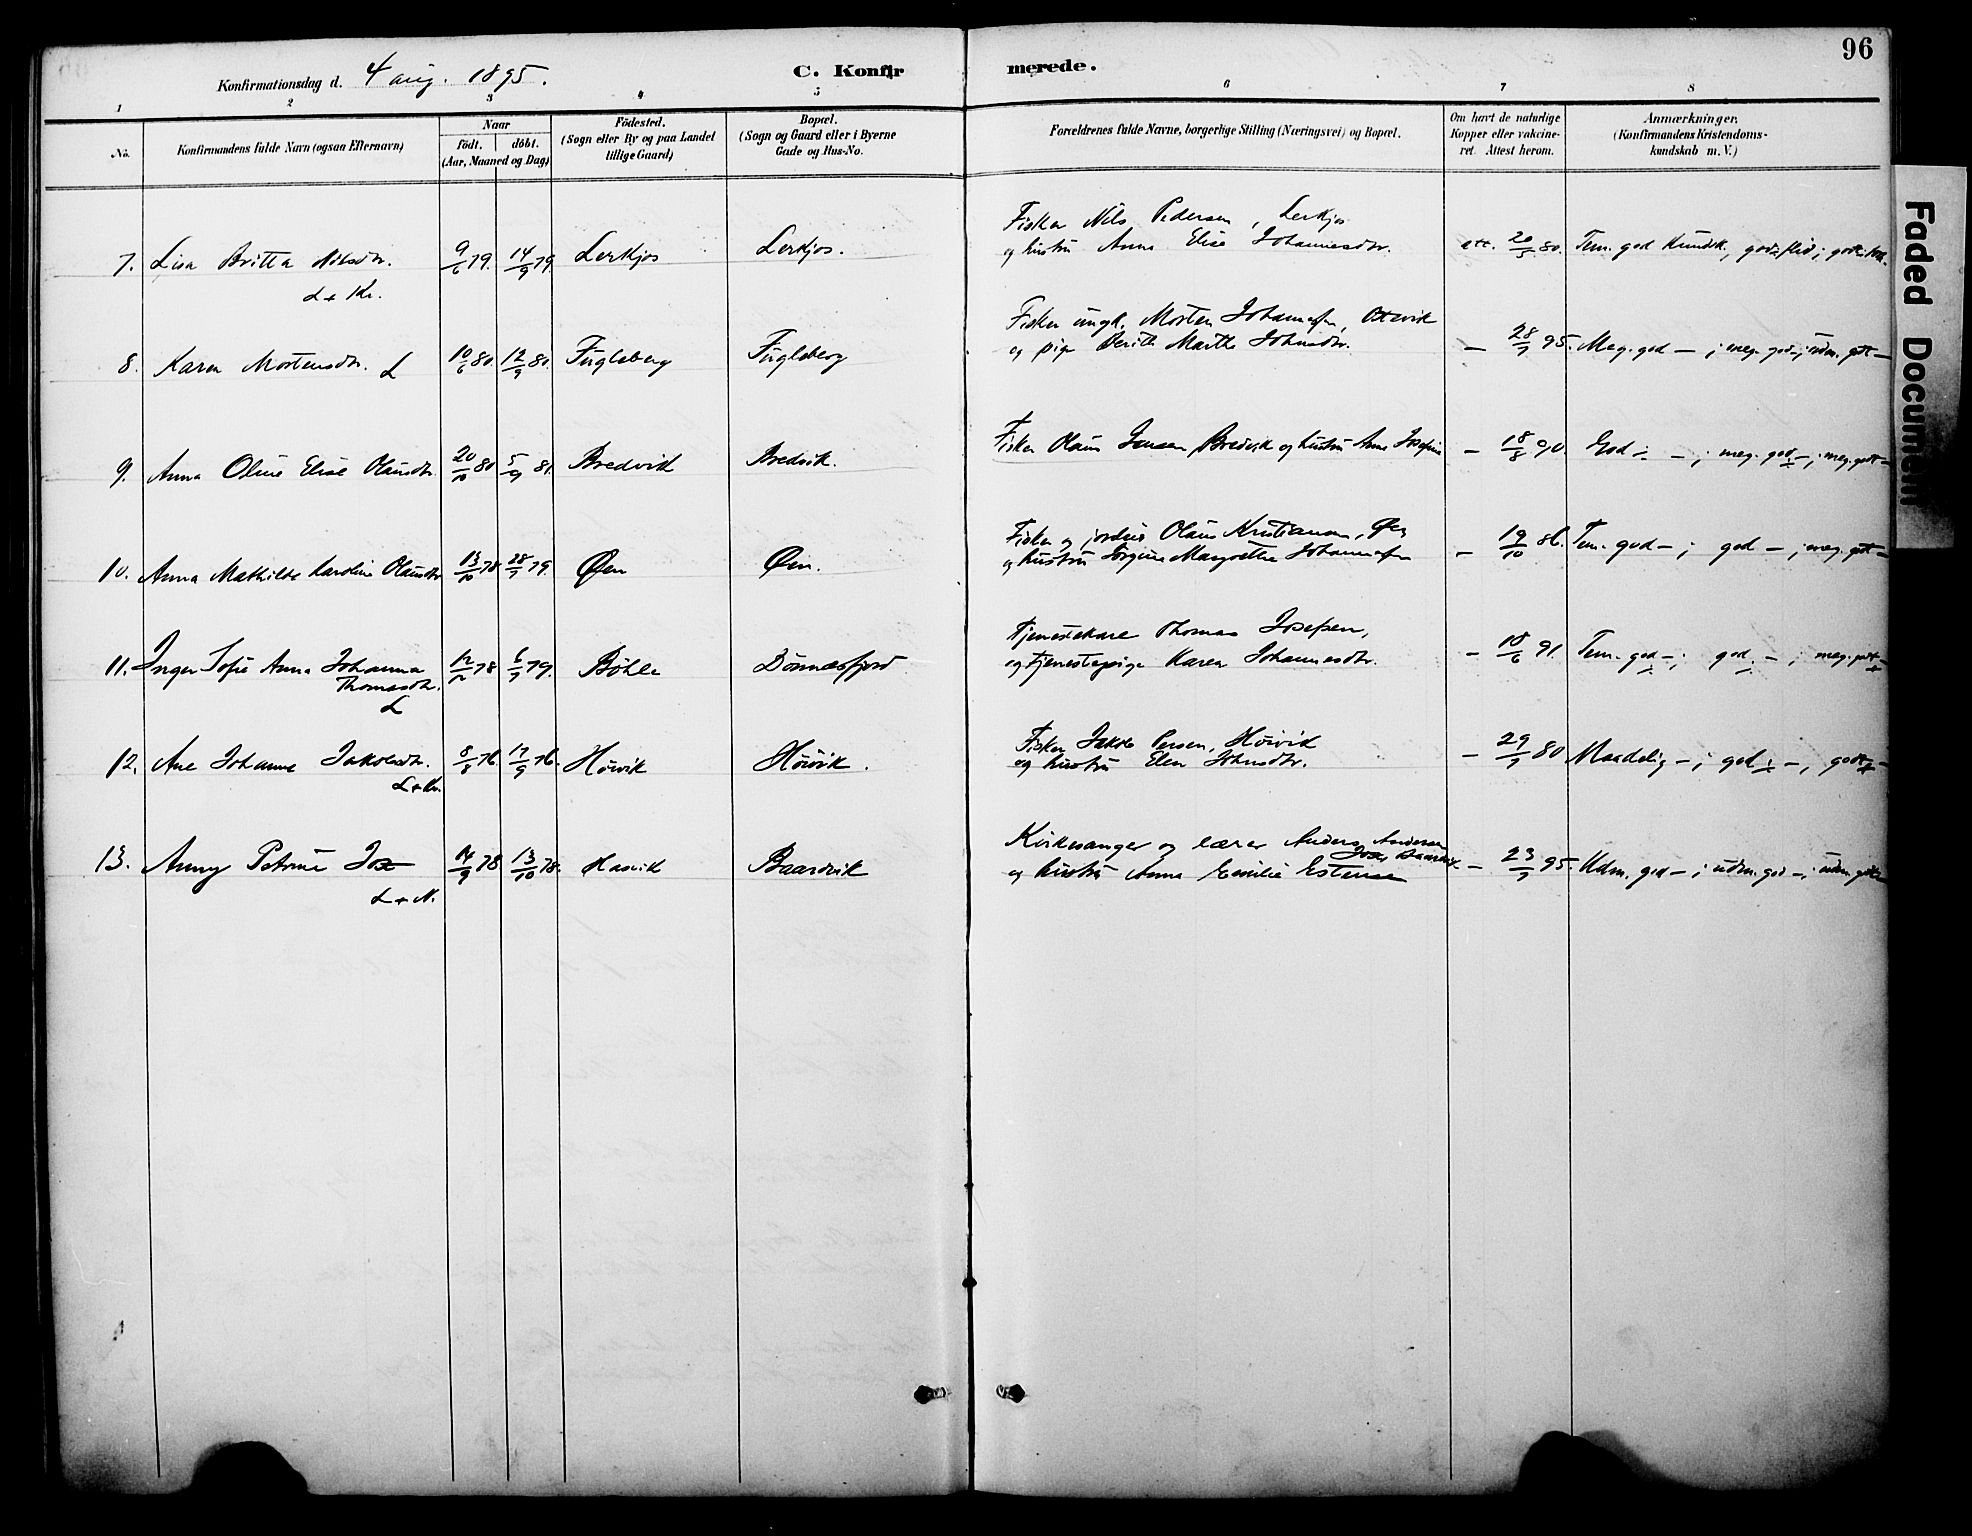 96
Konfirmationsdag d. 4 aug. 1895. C. Konfirmerede.
1 2 3 4 5 6 7 8
No. Konfirmandens fulde Navn (ogsaa Efternavn)
Naar
födt. döbt.
(Aar, Maaned og Dag)
Födested.
(Sogn eller By og paa Landet
tillige Gaard)
Bopæl.
(Sogn og Gaard eller i Byerne
Gade og Hus-No.
Forældrenes fulde Navne, borgerlige Stilling (Næringsvei) og Bopæl.
Om havt de naturlige
Kopper eller vakcine-
ret. Attest herom.
Anmærkninger.
(Konfirmandens Kristendoms-
kundskab m. V.)
Fisker Nils Pedersen, Lerkjos
7. Lisa Britta Nilsdtr. 9/6 79. 14/9 79. Lerkjos Lerkjos. og hustru Anna Elise Johannesdtr. att. 20/5 80. Tem. god Kundsk., god flid;
L + Kr.
Fisker ungk. Morten Johannesen,
8. Karen Mortensdtr. L 10/6 80. 12/9 80. Fugleberg Fugleberg og pige Berith Marthe Johnsdtr. — 28/7 95. Meg. god — ; meg. god —; udm. godt —
9. Anna Oline Elise Olausdtr. 20/10 80 5/9 81. Bredvik Bredvik. Fisker Olaus Jensen, Bredvik og hustru Anne Josefine — 18/8 90. God ÷ — ; meg. god — ; meg. godt —
Fisker og jordbr. Olaus Kristiansen, Øen
10. Anna Mathilde Karoline Olausdtr 13/10 78 28/9 79. Øen Øen. og hustru Jørgine Margrethe Johannesen — 19/10 86. Tem. god — ; god — ; meg. godt —
Tjenestekarl Thomas Josefsen,
11. Inger Sofie Anna Johanna 12/12 78 6/7 79. Böhle Dönnesfjord og tjenestepige Karen Johannesdtr. — 18/6 91. Tem. god — ; god — ; meg. godt —
Thomasdtr.
L
Fisker Jakob Persen, Höivik
12. Ane Johanne Jakobsdtr. 8/8 76. 17/9 76. Höivik Höivik. og hustru Elen Johnsdtr. — 29/7 80 Maadelig — ; god ÷ — ; godt —
L + Kr.
Kirkesanger og lærer Anders Andersen
13. Anny Petrine 14/9 78 13/10 78. Hasvik Baardvik og hustru Anna Emilie Estensen — 23/7 95. Udm. god — ; udm. god — ; udm. godt —
L + N.
Faded Document